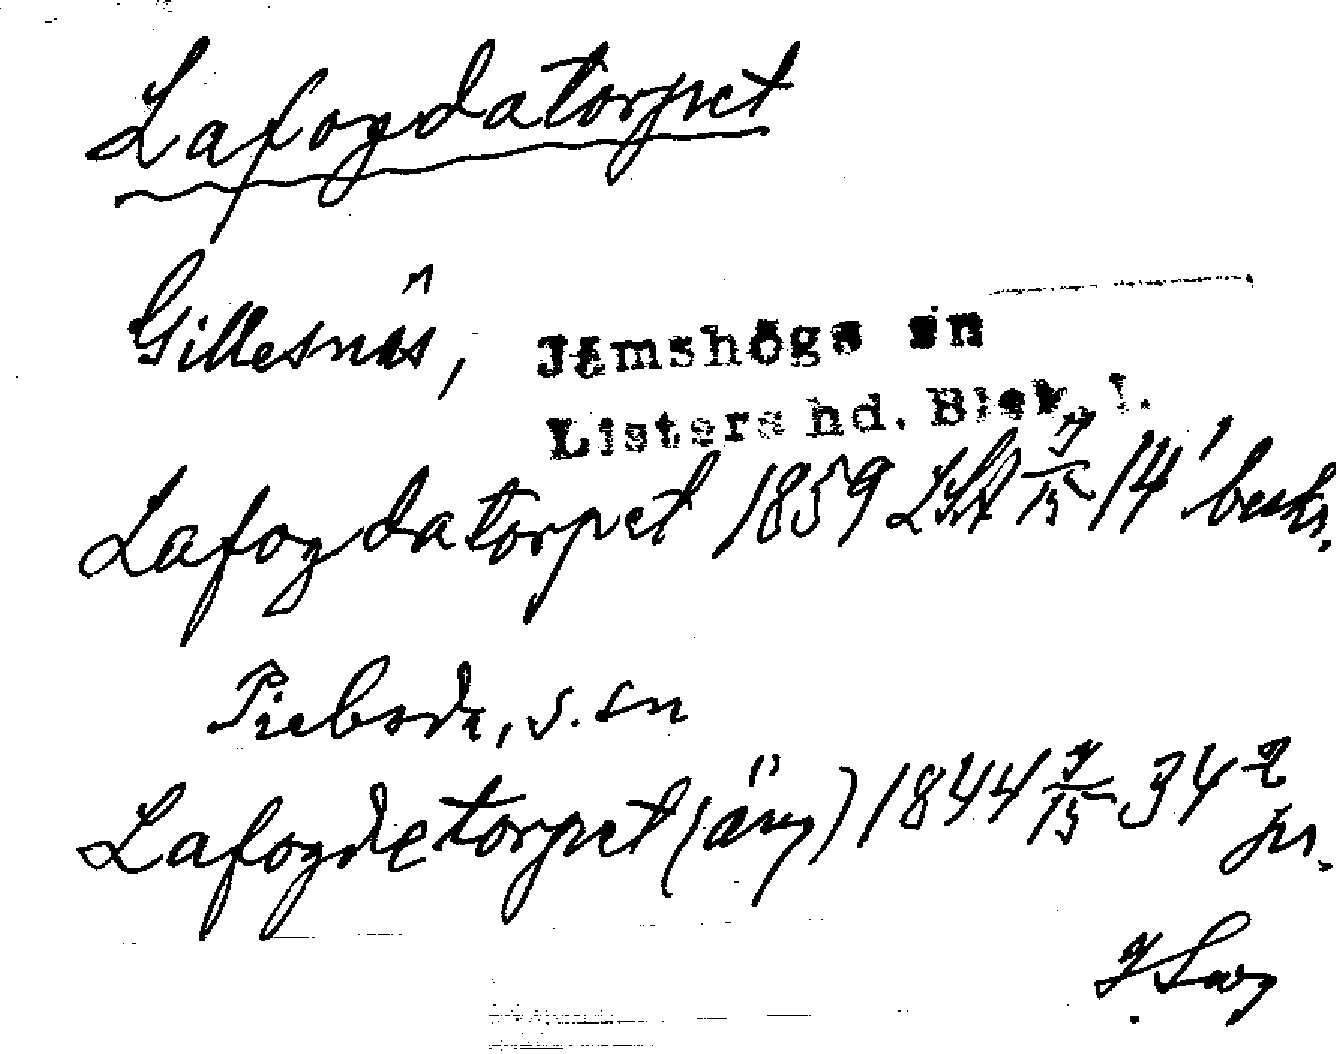 Lafogdatorpet
Gillesnäs, Jämshögs sn
Listers hd. Blek. l.
Lafogdatorpet 1859 LSA 7/15 14' beskr.
Pieboda, s. sn
Lafogdetorpet (äng) 1844 7/15 34